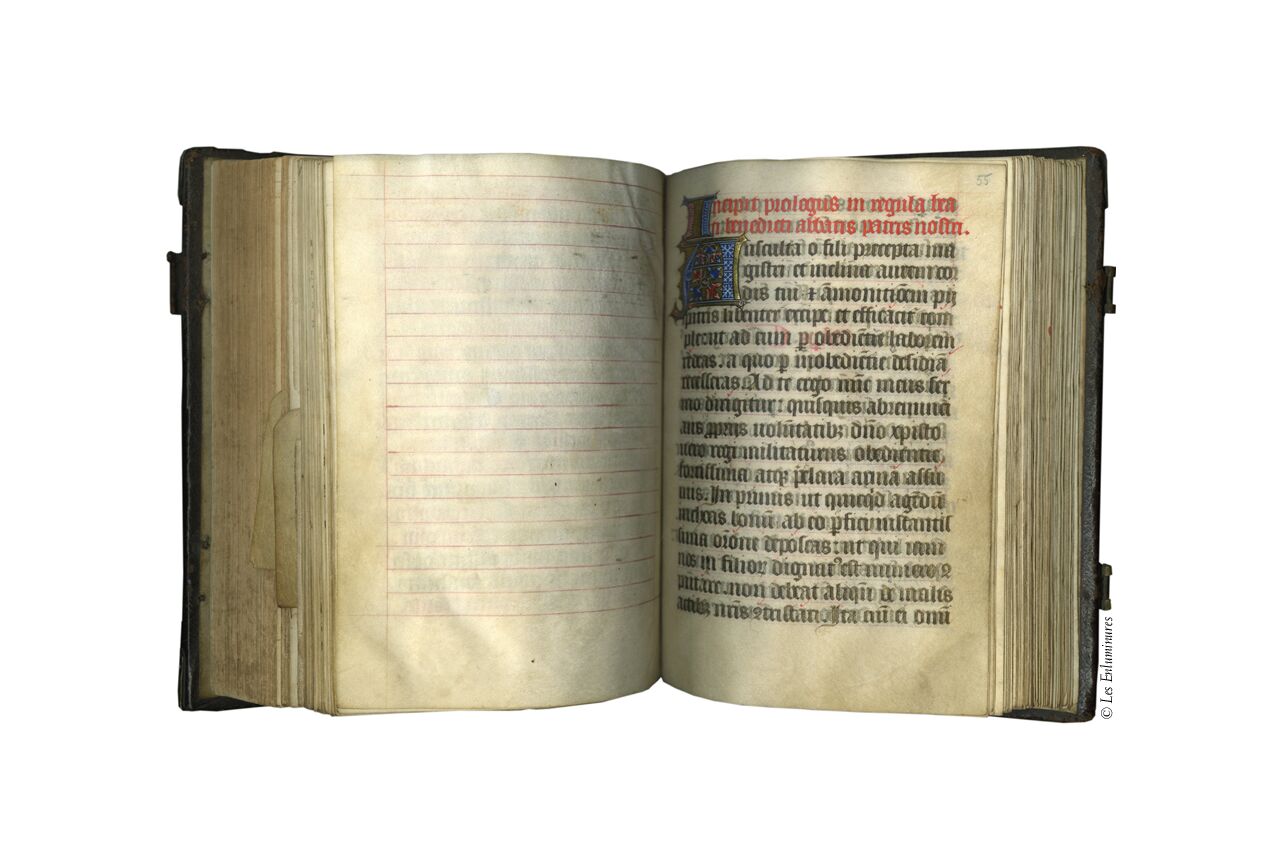 55
Incipit prologus in regula bea
ti benedicti abbatis patris nostri.
Ausculta o fili precepta ma
gistri et inclina aurem cor
dis tui et amonicionem pij
patris libenter excipe et efficacit com
ple: ut ad eum p obediencie laborem
redeas: a quo p inobediencie desidia
recesseras. Ad te ergo nunc meus ser
mo dirigitur: quisquis abrenunci
ans propriis uoluntatibz dno xpisto
uero regi militaturus obediencie,
fortissima atqz pclara arma assu
mis. In primis ut quicqd agedu
incheas bonu ab eo pfici instantis
sima orone deposcas: ut qui iam
nos in filior dignat est numero
putare. non debeat aliqn de malis
actibz nris tristari. Ita eni ei omi
© Les Enluminures